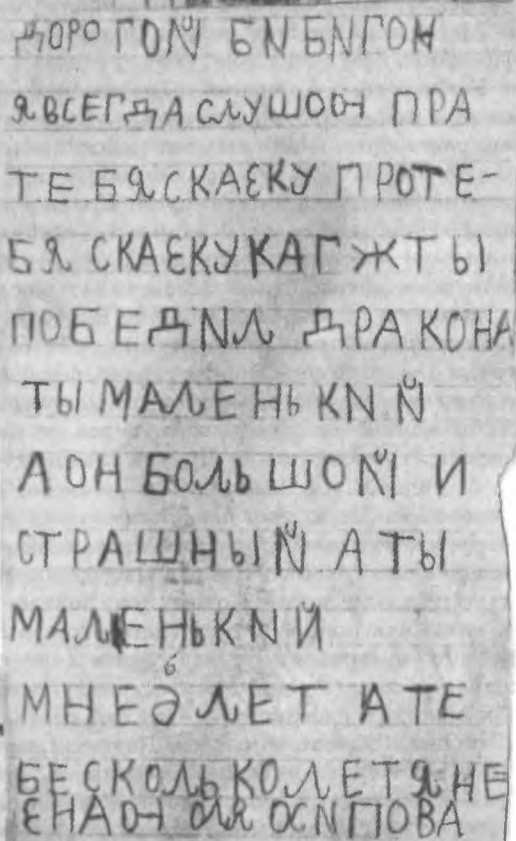 ДОРОГОЙ БИБИГОН
Я ВСЕГДА СЛУШОЮ ПРА
ТЕБЯ СКАЕКУ ПРО ТЕ-
БЯ СКАЕКУ КАГ ЖТЫ
ПОБЕДИЛ ДРАКОНА
ТЫ МАЛЕНЬКИЙ
А ОН БОЛЬШОЙ И
СТРАШНЫЙ А ТЫ
МАЛЕНЬКИЙ
МНЕ 6 ЛЕТ А ТЕ
БЕ СКОЛЬКО ЛЕТ Я НЕ
ЕНАЮ ОЛЯ ОСИПОВА